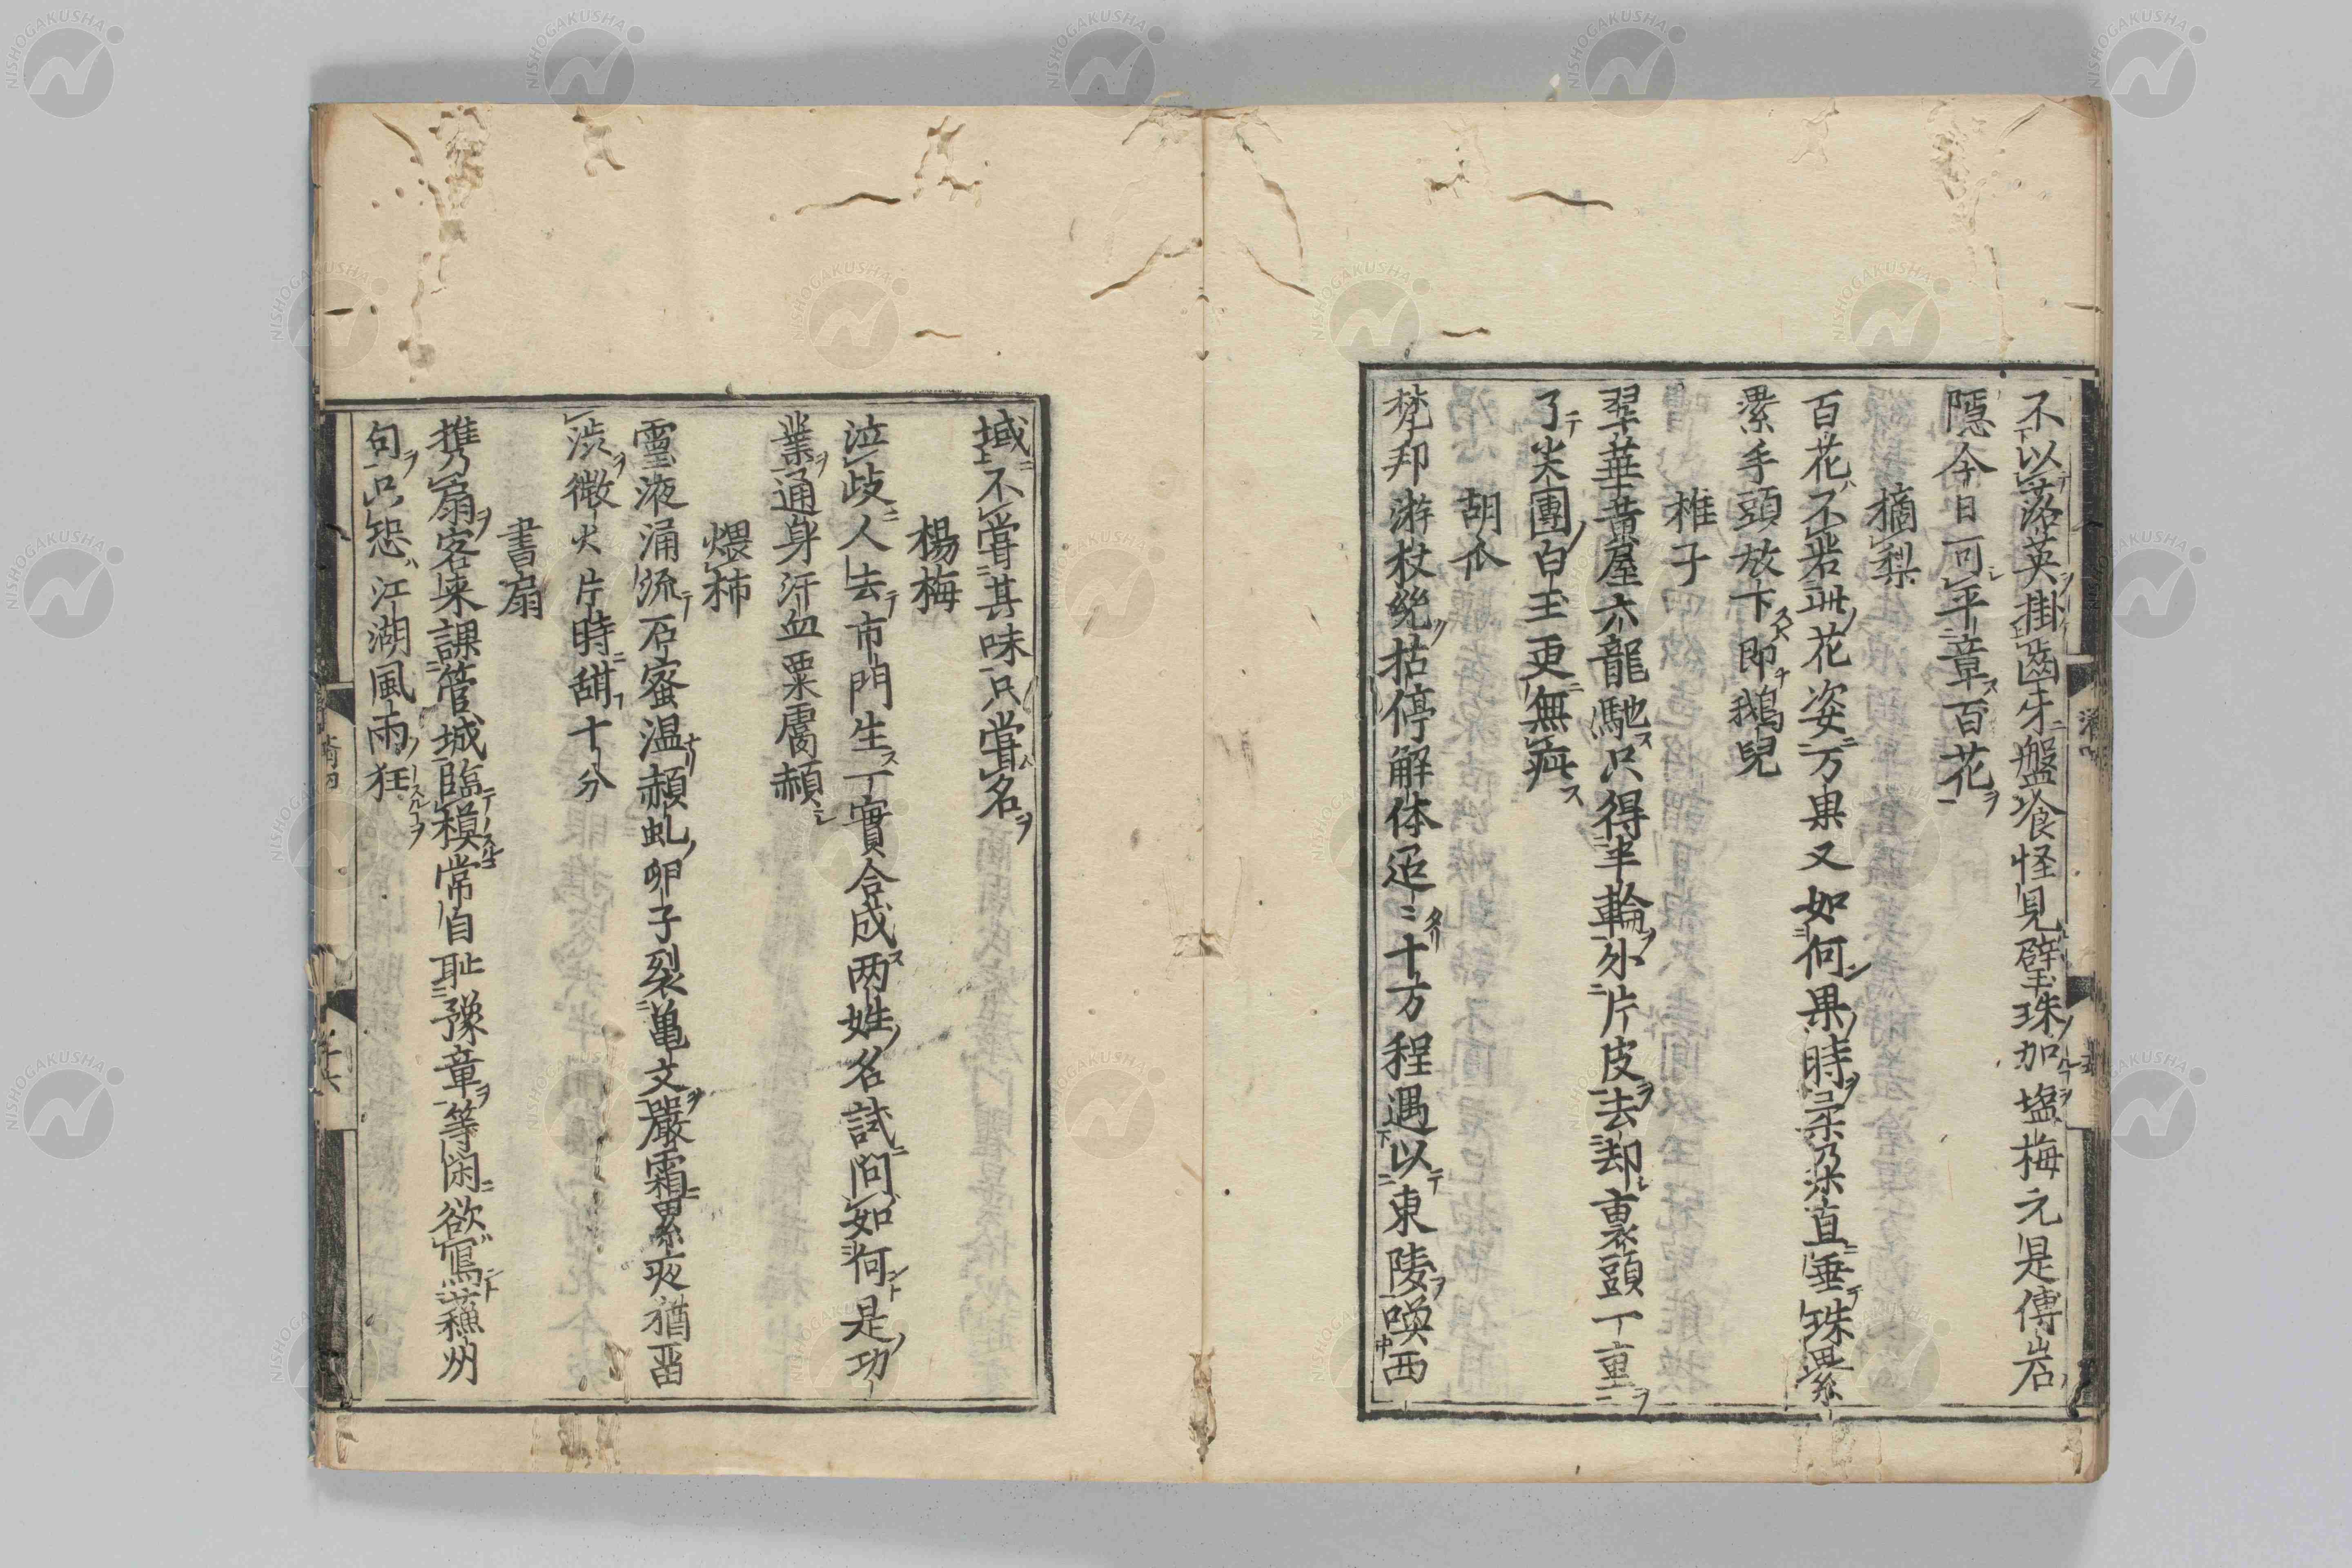 不以落英掛齒牙盤飡怪見璧珠加塩梅元是傅岩
隱今日可平章百花
摘梨
百花不若此花姿万果又如何果時柔乃染直垂珠累
漯手頭放下即鵝兒
椎子
翠華黄屋六龍馳只得半輪外片皮去却裏頭一重
了尖團白玉更無疵
胡瓜
梵邦游杖絶拈停解体迢〻十方程遇以東陵喚西
域不嘗其味只嘗名
楊梅
泣歧人去市門生一實合成两姓名試問如何是功
業通身汗血粟膚赬
煨柿
靈液涌流石蜜温赬虬卵子裂亀文嚴霜累夜猶畱
澁微火片時甜十分
書扇
携扇客来課管城臨模常自耻豫章等閑欲寫蘓州
句只恐江湖風雨狂